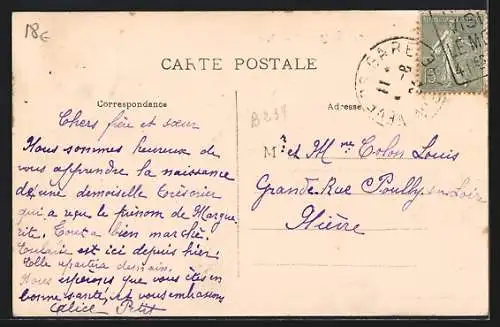 18€
CARTE POSTALE
Correspondance
Adresse
B237
Chers frère et sœur
Nous sommes heureux de
vous apprendre la naissance
d'une demoiselle Trésorier
qui a reçu le prénom de Margue
rite. Tout a bien marché.
est ici depuis hier.
Elle demain.
Nous espérons que vous êtes en
bonne santé, et vous embrassons
Alice Petit
Mr et Mme Colon Louis
Grande Rue Pouilly sur Loire
Nièvre
GARE
NEVERS
11 - 8